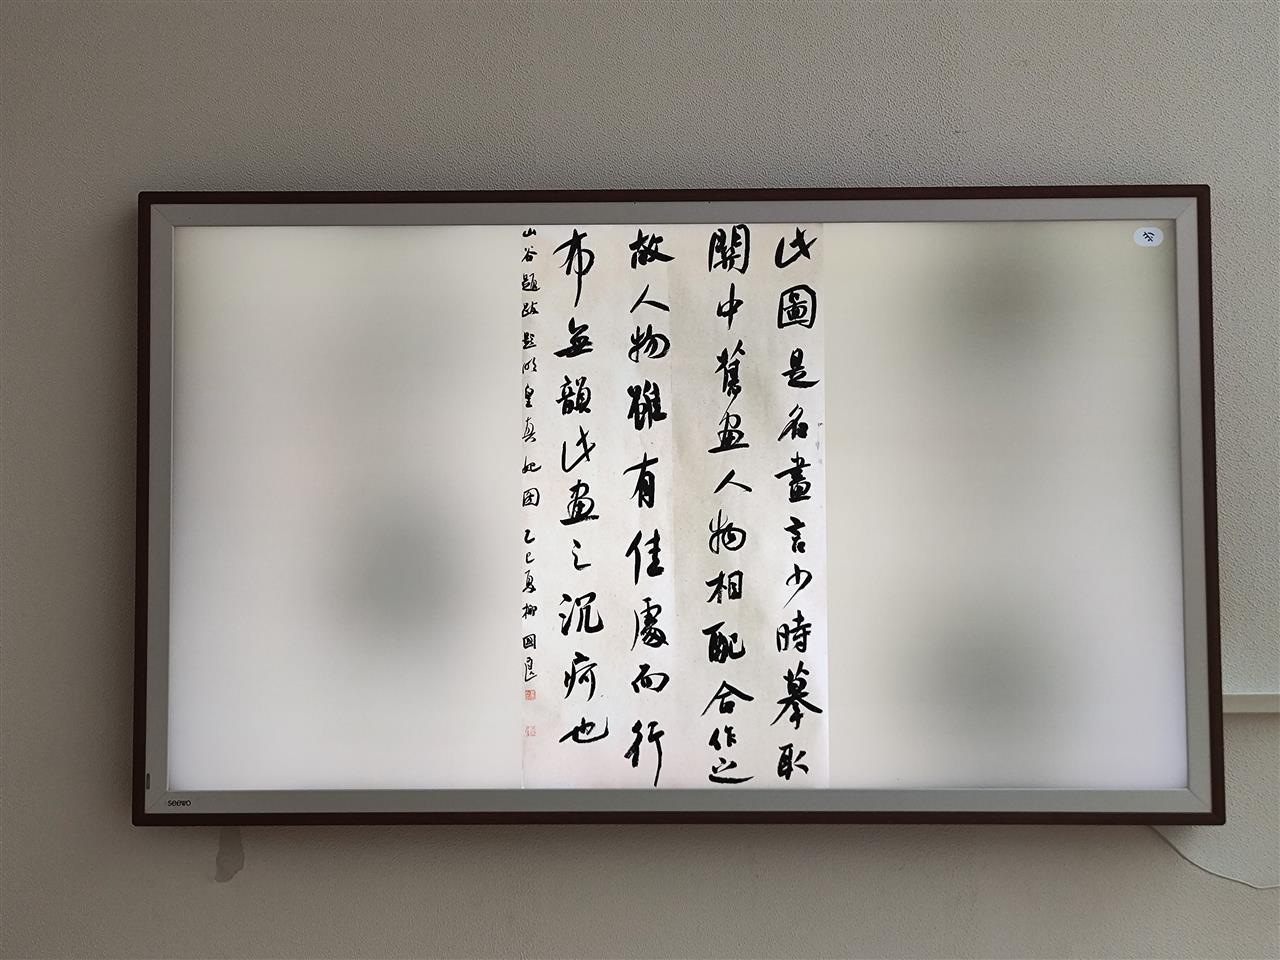 此圖是名畫言少時摹取
關中舊畫人物相配合作之
故人物雖有佳處而行
布無韻此畫之沉疴也
山谷題跋題明皇真妃圖 乙巳夏柳國良
seewo